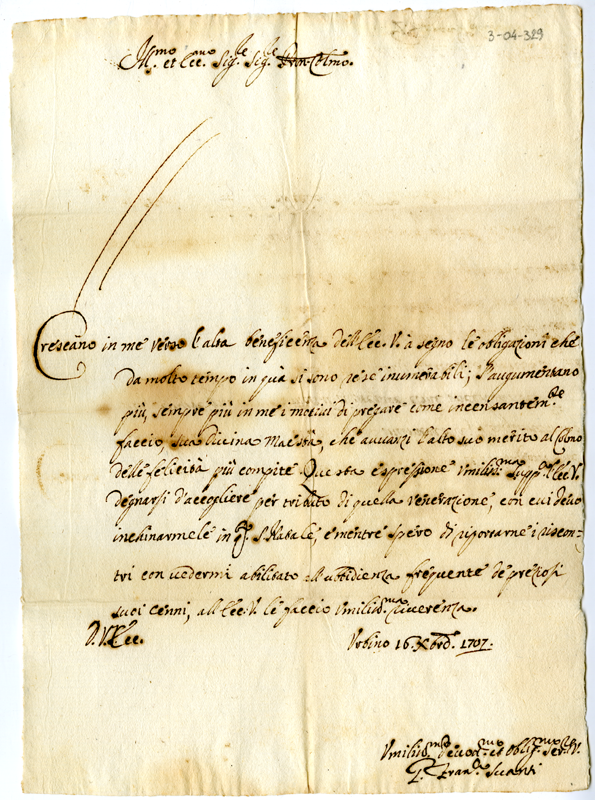 3-04-329
Ill.mo et Ecc.mo Sig.re Sig.re Pron Colmo.
Crescano in me verso l'alta beneficenza dell'Ecc. V. a segno le obligazioni che
da molto tempo in quà si sono rese inumerabili; S'augumentano
più, sempre più in me i motivi di pregare come incessantem.te
faccio, sua Divina Maestà, che avvanzi l'alto suo merito al Colmo
delle felicità più compite. Questa espressione Umiliss.ma supp.co l'Ecc. V.
degnarsi d'accogliere per tributo di quella Venerazione, con cui devo
inchinarmele in q.o S. Natale, e mentre spero di riportarne i riscon-
tri con vedermi abilitato all'ubbidienza frequente de preziosi
suoi cenni, all'Ecc. V. le faccio Umiliss.ma riverenza.
D. V. Ecc.
Urbino 16. Xbrē. 1707.
Umiliss.mo devot.mo et Obblig.mo Ser.re V.
Fran.co